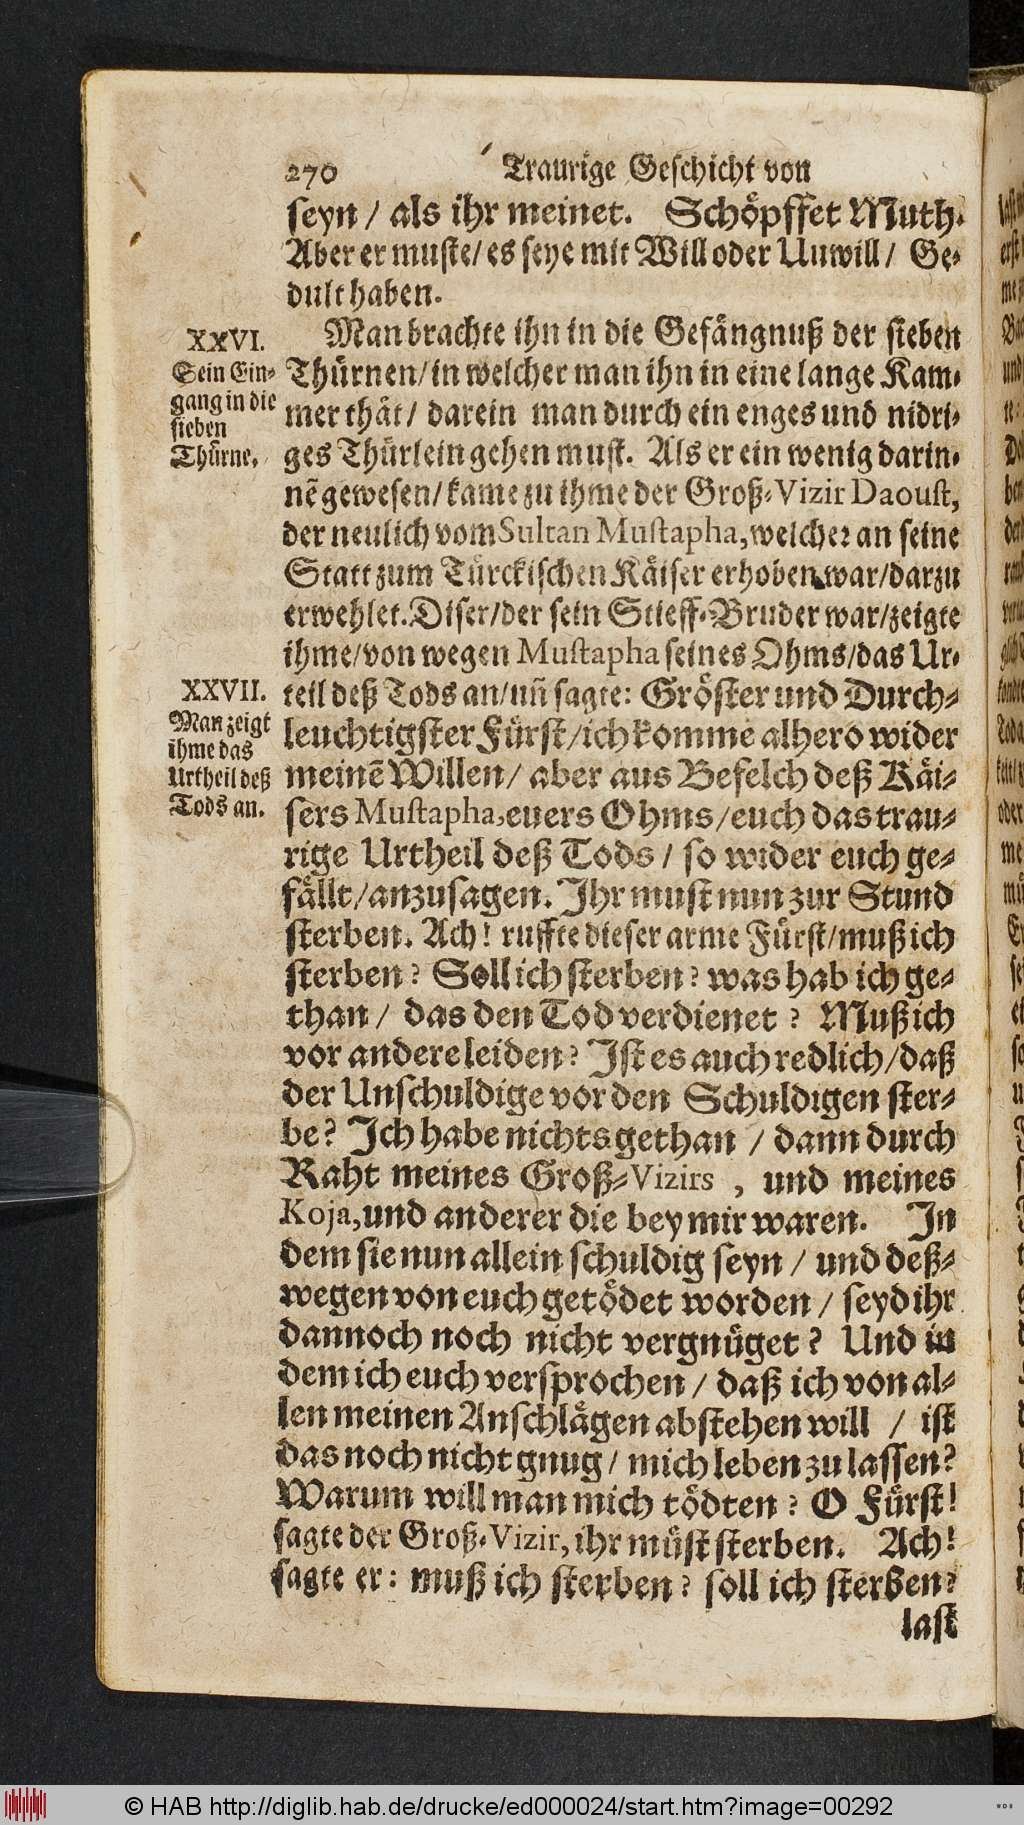 270 Traurige Geschicht von
seyn / als ihr meinet. Schöpffet Muth.
Aber er muste/ es seye mit Will oder Unwill / Ge-
dult haben.
XXVI.
Sein Ein-
gang in die
sieben
Thürne.
Man brachte ihn in die Gefängnuß der sieben
Thürnen/ in welcher man ihn in eine lange Kam-
mer thät/ darein man durch ein enges und nidri-
ges Thürlein gehen must. Als er ein wenig darin-
nē gewesen/ kame zu ihme der Groß-Vizir Daoust,
der neulich vom Sultan Mustapha, welcher an seine
Statt zum Türckischen Käiser erhoben war/ darzu
erwehlet. Diser/ der sein Stieff-Bruder war/ zeigte
ihme/ von wegen Mustapha seines Ohms/ das Ur-
XXVII.
Man zeigt
ihme das
Urtheil deß
Tods an.
teil deß Tods an/ uñ sagte: Gröster und Durch-
leuchtigster Fürst/ ich komme alhero wider
meinē Willen/ aber aus Befelch deß Käi-
sers Mustapha, euers Ohms/ euch das trau-
rige Urtheil deß Tods / so wider euch ge-
fällt/ anzusagen. Ihr must nun zur Stund
sterben. Ach! ruffte dieser arme Fürst/ muß ich
sterben? Soll ich sterben? was hab ich ge-
than / das den Tod verdienet? Muß ich
vor andere leiden? Ist es auch redlich/ daß
der Unschuldige vor den Schuldigen ster-
be? Ich habe nichts gethan / dann durch
Raht meines Groß-Vizirs , und meines
Koja, und anderer die bey mir waren. In
dem sie nun allein schuldig seyn / und deß-
wegen von euch getödet worden / seyd ihr
dannoch noch nicht vergnüget? Und in
dem ich euch versprochen / daß ich von al-
len meinen Anschlägen abstehen will / ist
das noch nicht gnug / mich leben zu lassen?
Warum will man mich tödten? O Fürst!
sagte der Groß-Vizir, ihr müst sterben. Ach!
sagte er: muß ich sterben? soll ich sterben?
last
© HAB http://diglib.hab.de/drucke/ed000024/start.htm?image=00292